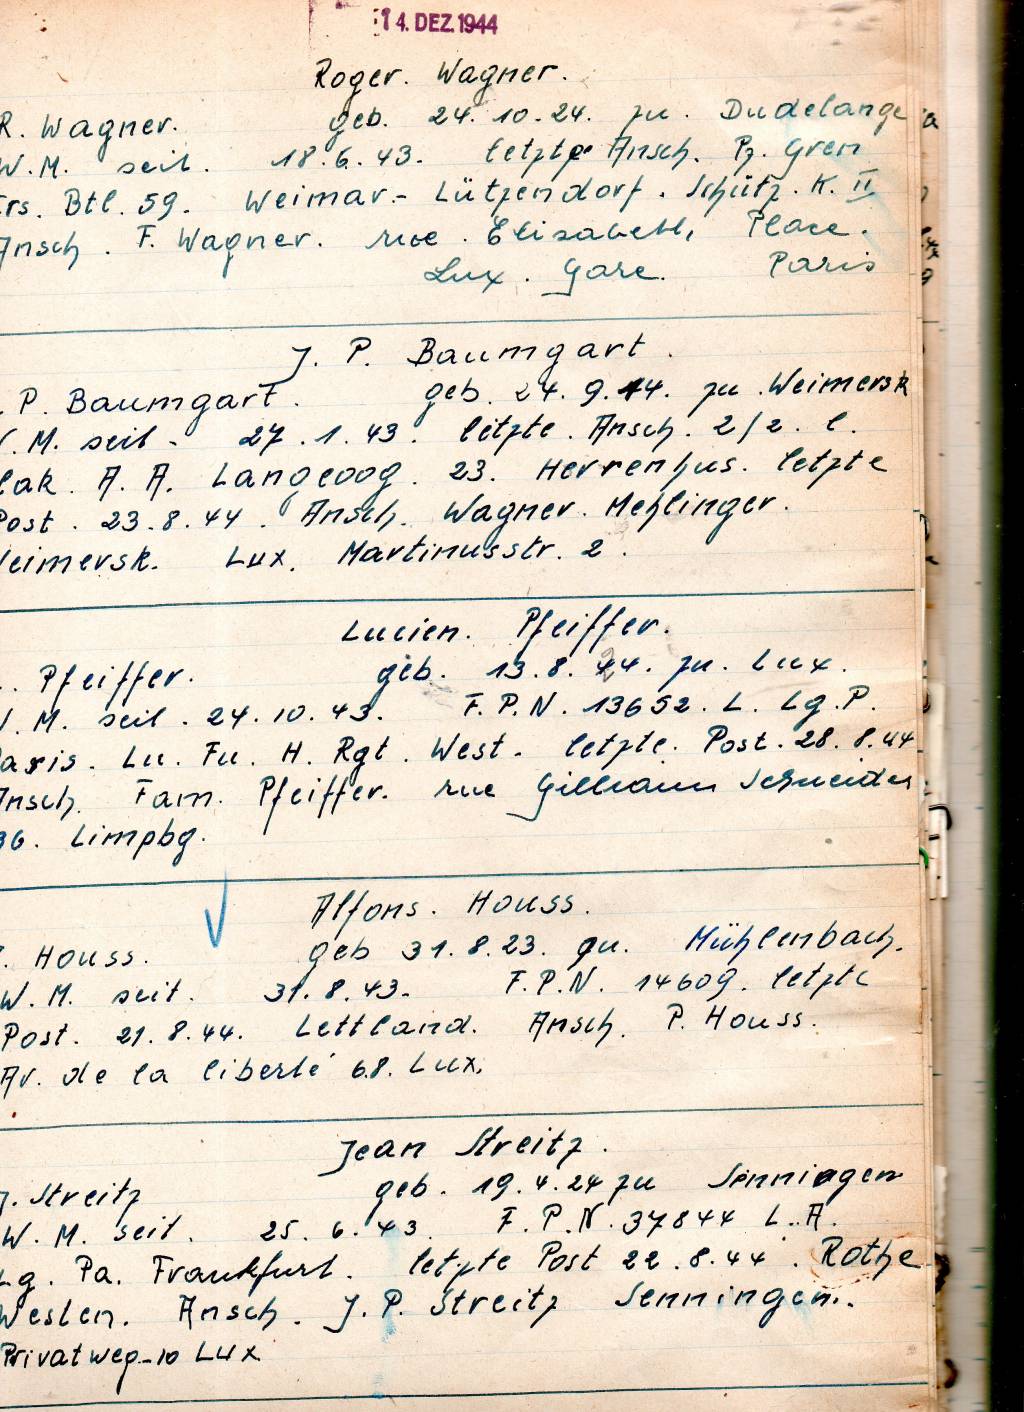 14. DEZ. 1944
Roger. Wagner.
R. Wagner. geb. 24. 10. 24. zu. Dudelange
W. M. seit. 18. 6. 43. letzte Ansch. Pz. Gren
Ers. Btl. 59. Weimar.- Lützendorf. Schütz. K. II
Ansch. F. Wagner. rue. Elisabeth, Place.
Lux. Gare. Paris
J. P. Baumgart.
. P. Baumgart. geb. 24. 9. 14. zu. Weimersk
W. M. seit - 27. 1. 43. letzte. Ansch. 2/2. l.
lak. A. A. Langeoog. 23. Herrenhus. letzte
Post. 23. 8. 44. Ansch. Wagner. Mehlinger.
Weimersk. Lux. Martinusstr. 2.
Lucien. Pfeiffer.
. Pfeiffer. geb. 13. 8. 24. zu. Lux.
W. M. seit. 24. 10. 43. F. P. N. 13652. L. Lg. P.
Paris. Lu. Fu. H. Rgt. West. letzte. Post. 28. 8. 44
Ansch. Fam. Pfeiffer. rue Schneider
36. Limpbg.
Alfons. Houss.
. Houss. geb 31. 8. 23. zu. Mühlenbach.
W. M. seit. 31. 8. 43. F. P. N. 14609. letzte
Post. 21. 8. 44. Lettland. Ansch. P. Houss.
Av. de la liberté 68. Lux.
Jean Streitz.
J. Streitz geb. 19. 4. 24 zu Senningen
W. M. seit. 25. 6. 43. F. P. N. 37844 L. A.
Lg. Pa. Frankfurt. letzte Post 22. 8. 44. Rothe
Westen. Ansch. J. P. Streitz Senningen.
Privatweg-10 Lux